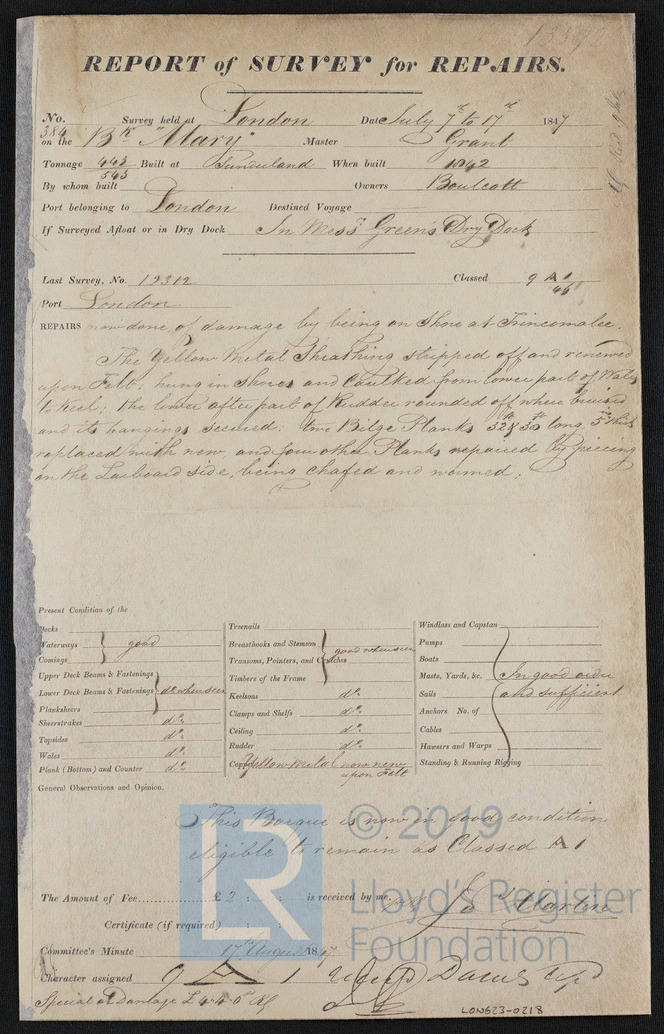 REPORT of SURVEY for REPAIRS.
No. 384 Survey held at London Date July 7th to 17th 1847
on the Bk "Mary" Master Grant
Tonnage 443 543 Built at Sunderland When built 1842
By whom built Owners Boulcott
Port belonging to London Destined Voyage
If Surveyed Afloat or in Dry Dock In Messrs Green's Dry Dock
Last Survey, No. 12312 Classed 9 A 1 46
Port London
REPAIRS now done of damage by being on Shore at Trincomalee.
The Yellow Metal Sheathing stripped off and renewed
upon Felt, hung in Shores and Caulked from lower part of Wales
to Keel; the lower after part of Rudder rounded off where bruised
and its hangings secured: two Bilge Planks 32 & 30 ft long, 5 in thick
replaced with new, and four other Planks repaired by piecing
on the Larboard side, being chafed and wormed.
Present Condition of the
Decks
Waterways good
Comings
Upper Deck Beams & Fastenings
Lower Deck Beams & Fastenings do when seen
Planksheers
Sheerstrakes do
Topsides do
Wales do
Plank (Bottom) and Counter do
Treenails
Breasthooks and Stemson good when seen
Transoms, Pointers, and Crutches
Timbers of the Frame
Keelsons do
Clamps and Shelfs do
Ceiling do
Rudder do
Copper Yellow Metal now new upon Felt
Windlass and Capstan
Pumps
Boats
Masts, Yards, &c. In good order
Sails and sufficient
Anchors No. of
Cables
Hawsers and Warps
Standing & Running Rigging
General Observations and Opinion.
This Barque is now in good condition
eligible to remain as Classed A 1
The Amount of Fee £2 : : is received by me,
Certificate (if required) : :
Martin
Committee's Minute 17th August 1847
Character assigned 9 A 1
Special at Damage £4.4.0
LON623-0218
© 2019
LR
Lloyd's Register
Foundation